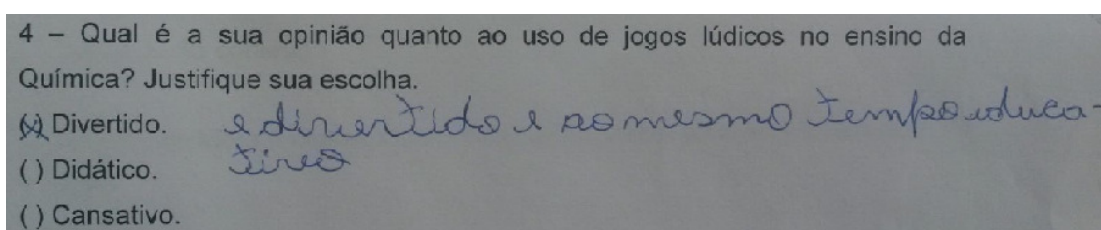 4 – Qual é a sua opinião quanto ao uso de jogos lúdicos no ensino da
Química? Justifique sua escolha.
(x) Divertido. e divertido e ao mesmo tempo educa-
( ) Didático. tivo
( ) Cansativo.